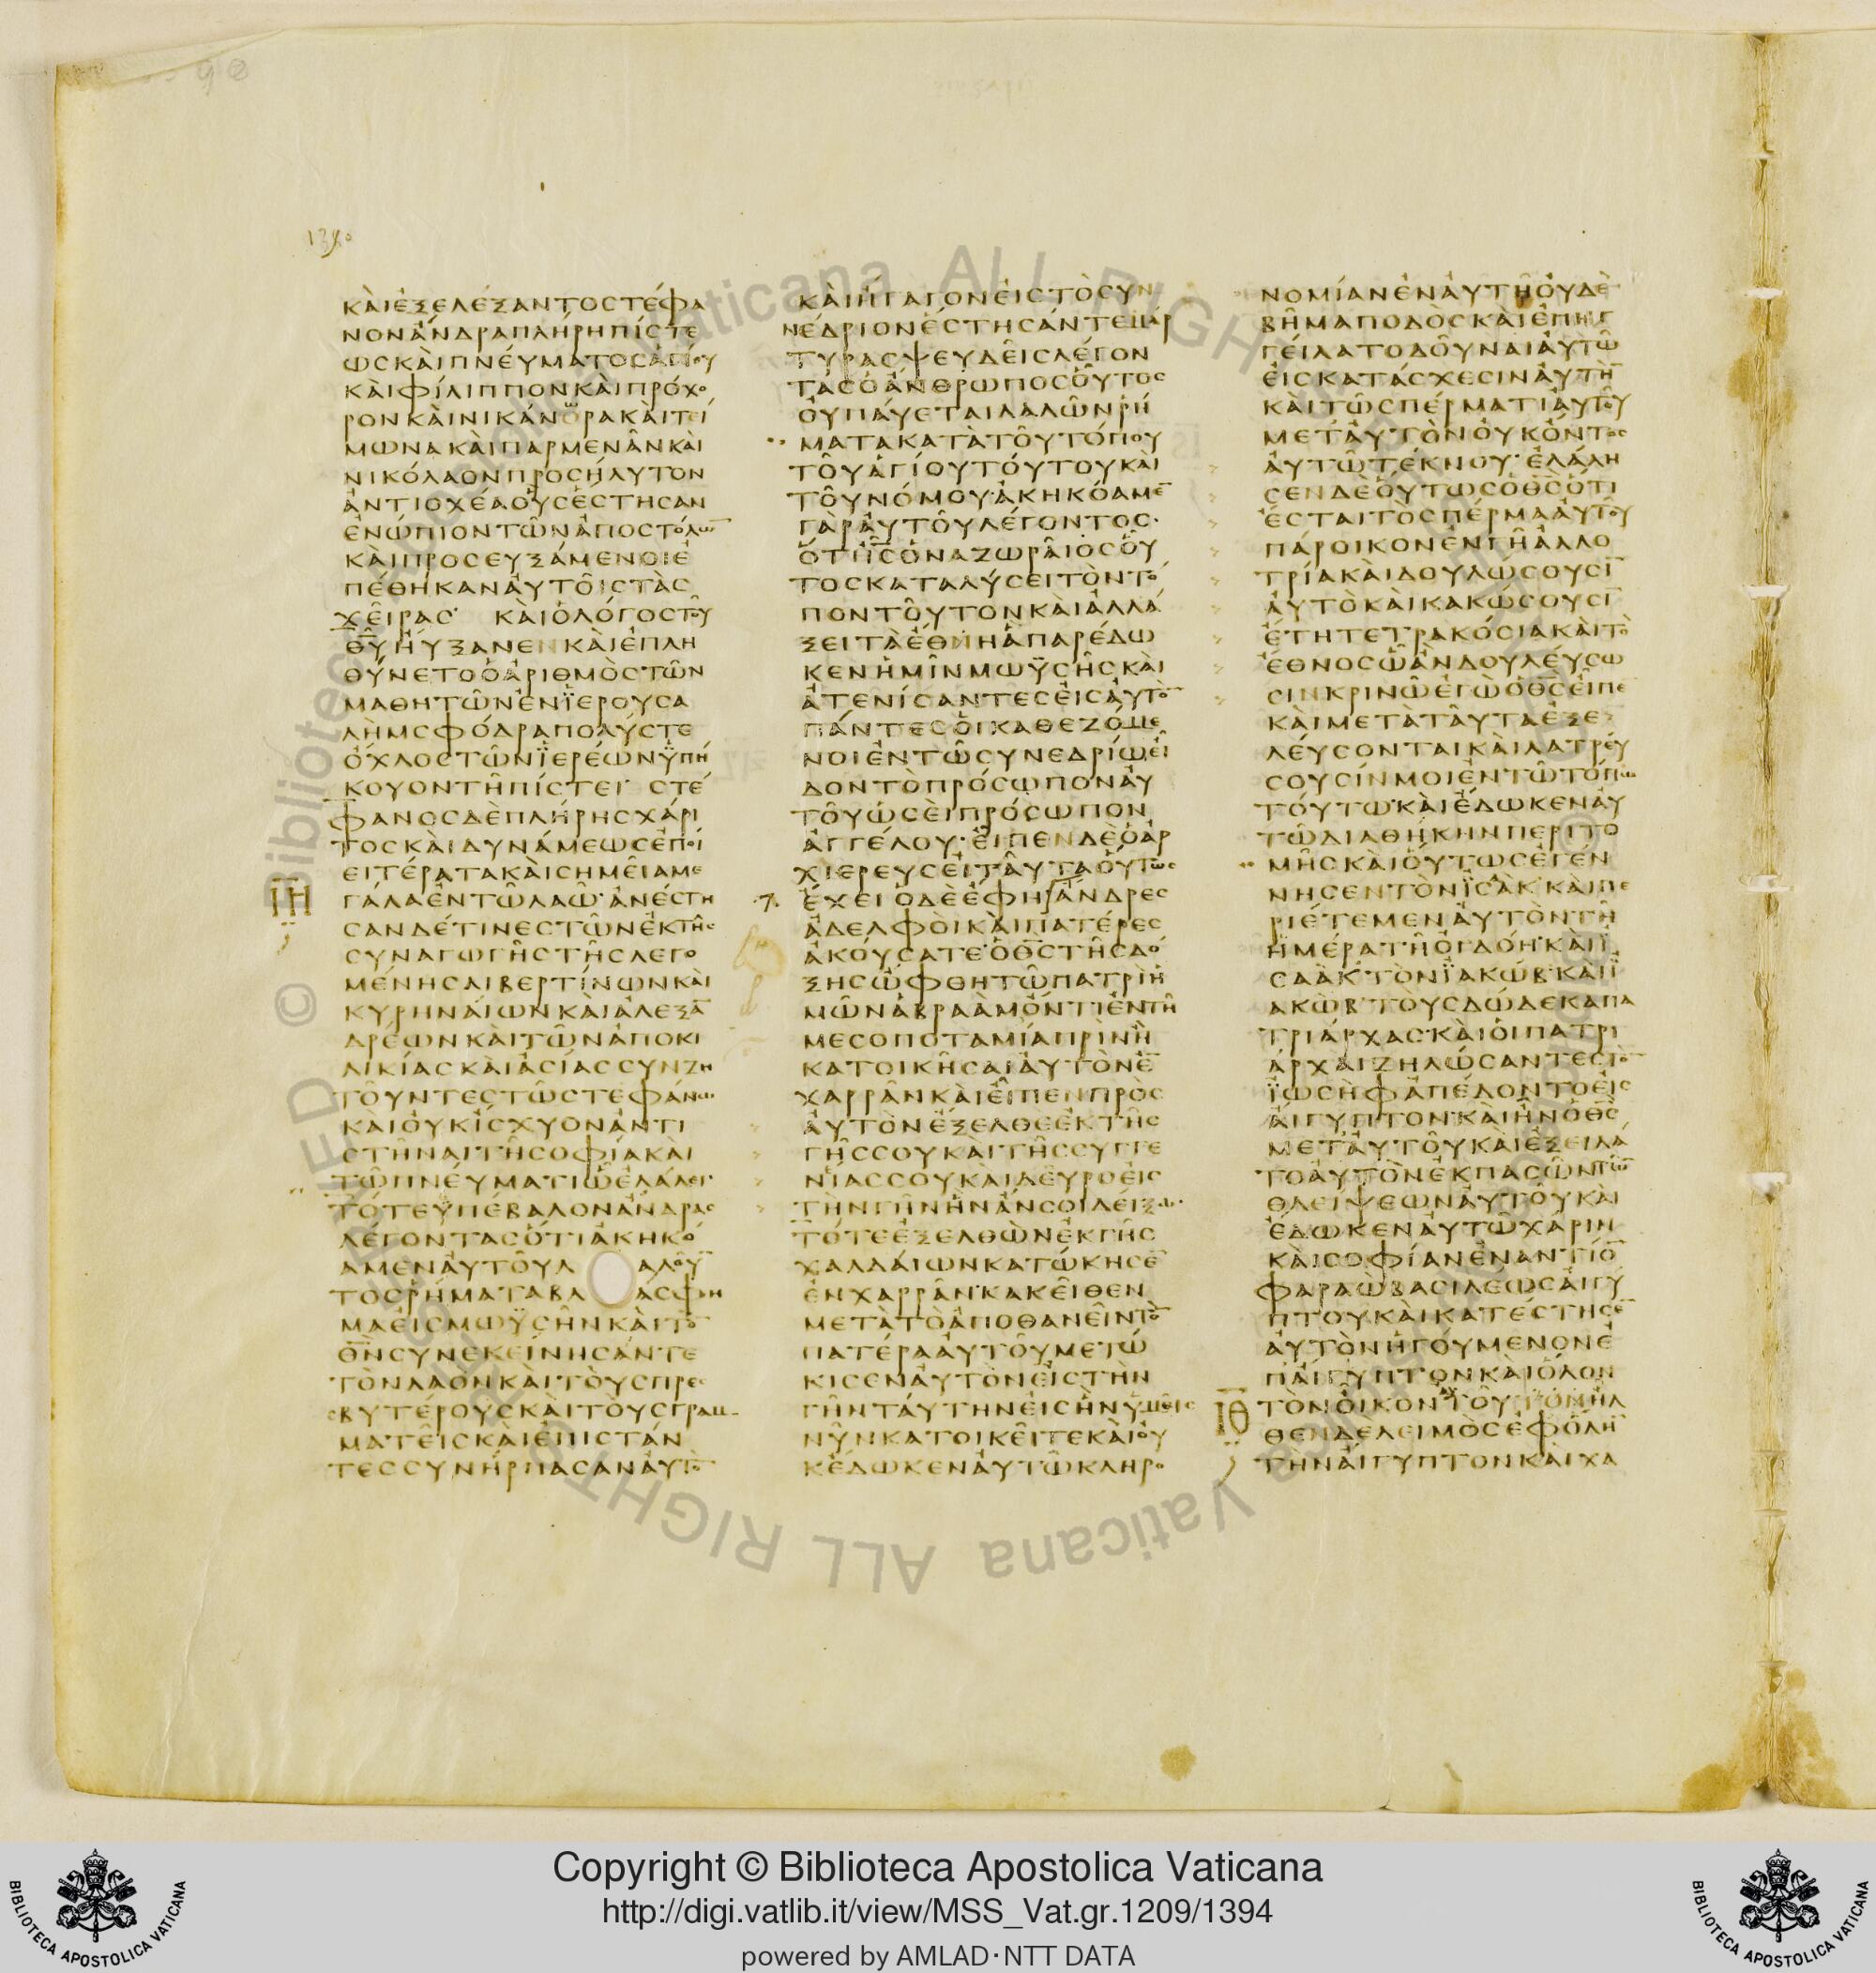 1390
ΚΑΙΕΞΕΛΕΞΑΝΤΟΣΤΕΦΑ
ΝΟΝΑΝΔΡΑΠΛΗΡΗΠΙΣΤΕ
ΩΣΚΑΙΠΝΕΥΜΑΤΟΣΑΓΙΟΥ
ΚΑΙΦΙΛΙΠΠΟΝΚΑΙΠΡΟΧΟ
ΡΟΝΚΑΙΝΙΚΑΝΟΡΑΚΑΙΤΕΙ
ΜΩΝΑΚΑΙΠΑΡΜΕΝΑΝΚΑΙ
ΝΙΚΟΛΑΟΝΠΡΟΣΗΛΥΤΟΝ
ΑΝΤΙΟΧΕΑΟΥΣΕΣΤΗΣΑΝ
ΕΝΩΠΙΟΝΤΩΝΑΠΟΣΤΟΛΩ̅
ΚΑΙΠΡΟΣΕΥΞΑΜΕΝΟΙΕ
ΠΕΘΗΚΑΝΑΥΤΟΙΣΤΑΣ
ΧΕΙΡΑΣ· ΚΑΙΟΛΟΓΟΣΤΟΥ
Θ̅Υ̅ΗΥΞΑΝΕΝΚΑΙΕΠΛΗ
ΘΥΝΕΤΟΟΑΡΙΘΜΟΣΤΩΝ
ΜΑΘΗΤΩΝΕΝΪΕΡΟΥΣΑ
ΛΗΜΣΦΟΔΡΑΠΟΛΥΣΤΕ
ΟΧΛΟΣΤΩΝΪΕΡΕΩΝΫΠΗ
ΚΟΥΟΝΤΗΠΙΣΤΕΙ· ΣΤΕ
ΦΑΝΟΣΔΕΠΛΗΡΗΣΧΑΡΙ
ΤΟΣΚΑΙΔΥΝΑΜΕΩΣΕΠΟΙ
ΕΙΤΕΡΑΤΑΚΑΙΣΗΜΕΙΑΜΕ
Ι̅Η̅ ΓΑΛΑΕΝΤΩΛΑΩ·ΑΝΕΣΤΗ
ΣΑΝΔΕΤΙΝΕΣΤΩΝΕΚΤΗΣ
ΣΥΝΑΓΩΓΗΣΤΗΣΛΕΓΟ
ΜΕΝΗΣΛΙΒΕΡΤΙΝΩΝΚΑΙ
ΚΥΡΗΝΑΙΩΝΚΑΙΑΛΕΞΑ̅
ΔΡΕΩΝΚΑΙΤΩΝΑΠΟΚΙ
ΛΙΚΙΑΣΚΑΙΑΣΙΑΣΣΥΝΖΗ
ΤΟΥΝΤΕΣΤΩΣΤΕΦΑΝΩ·
ΚΑΙΟΥΚΙΣΧΥΟΝΑΝΤΙ
ΣΤΗΝΑΙΤΗΣΟΦΙΑΚΑΙ
ΤΩΠΝΕΥΜΑΤΙΩΕΛΑΛΕΙ·
ΤΟΤΕΫΠΕΒΑΛΟΝΑΝΔΡΑΣ
ΛΕΓΟΝΤΑΣΟΤΙΑΚΗΚΟ
ΑΜΕΝΑΥΤΟΥΛ ΑΛΟΥ̅
ΤΟΣΡΗΜΑΤΑΒΛ ΑΣΦΗ
ΜΑΕΙΣΜΩΫΣΗΝΚΑΙΤΟ̅
Θ̅Ν̅ΣΥΝΕΚΕΙΝΗΣΑΝΤΕ
ΤΟΝΛΑΟΝΚΑΙΤΟΥΣΠΡΕΣ
ΒΥΤΕΡΟΥΣΚΑΙΤΟΥΣΓΡΑΜ
ΜΑΤΕΙΣΚΑΙΕΠΙΣΤΑΝ
ΤΕΣΣΥΝΗΡΠΑΣΑΝΑΥΤΟ̅
ΚΑΙΗΓΑΓΟΝΕΙΣΤΟΣΥΝ
ΝΕΔΡΙΟΝΕΣΤΗΣΑΝΤΕΜΑΡ
ΤΥΡΑΣΨΕΥΔΕΙΣΛΕΓΟΝ
ΤΑΣΟΑΝΘΡΩΠΟΣΟΥΤΟΣ
ΟΥΠΑΥΕΤΑΙΛΑΛΩΝΡΗ
ΜΑΤΑΚΑΤΑΤΟΥΤΟΠΟΥ
ΤΟΥΑΓΙΟΥΤΟΥΤΟΥΚΑΙ
ΤΟΥΝΟΜΟΥ·ΑΚΗΚΟΑΜΕ̅
ΓΑΡΑΥΤΟΥΛΕΓΟΝΤΟΣ·
ΟΤΙΙ̅Σ̅ΟΝΑΖΩΡΑΙΟΣΟΥ
ΤΟΣΚΑΤΑΛΥΣΕΙΤΟΝΤΟ
ΠΟΝΤΟΥΤΟΝΚΑΙΑΛΛΑ
ΞΕΙΤΑΕΘΝΗΑΠΑΡΕΔΩ
ΚΕΝΗΜΙΝΜΩΫΣΗΣΚΑΙ
ΑΤΕΝΙΣΑΝΤΕΣΕΙΣΑΥΤΟ̅
ΠΑΝΤΕΣΟΙΚΑΘΕΖΟΜΕ
ΝΟΙΕΝΤΩΣΥΝΕΔΡΙΩΕΙ
ΔΟΝΤΟΠΡΟΣΩΠΟΝΑΥ
ΤΟΥΩΣΕΙΠΡΟΣΩΠΟΝ
ΑΓΓΕΛΟΥ·ΕΙΠΕΝΔΕΟΑΡ
ΧΙΕΡΕΥΣΕΙΤΑΥΤΑΟΥΤΩΣ
7. ΕΧΕΙΟΔΕΕΦΗΑΝΔΡΕΣ
ΑΔΕΛΦΟΙΚΑΙΠΑΤΕΡΕΣ
ΑΚΟΥΣΑΤΕ·ΟΘ̅Σ̅ΤΗΣΔΟ
ΞΗΣΩΦΘΗΤΩΠΑΤΡΙΗ
ΜΩΝΑΒΡΑΑΜΟΝΤΙΕΝΤΗ
ΜΕΣΟΠΟΤΑΜΙΑΠΡΙΝΗ
ΚΑΤΟΙΚΗΣΑΙΑΥΤΟΝΕ̅
ΧΑΡΡΑΝΚΑΙΕΙΠΕΝΠΡΟΣ
ΑΥΤΟΝΕΞΕΛΘΕΕΚΤΗΣ
ΓΗΣΣΟΥΚΑΙΤΗΣΣΥΓΓΕ
ΝΙΑΣΣΟΥΚΑΙΔΕΥΡΟΕΙΣ
ΤΗΝΓΗΝΗΝΑΝΣΟΙΔΕΙΞΩ·
ΤΟΤΕΕΞΕΛΘΩΝΕΚΓΗΣ
ΧΑΛΔΑΙΩΝΚΑΤΩΚΗΣΕ̅
ΕΝΧΑΡΡΑΝ·ΚΑΚΕΙΘΕΝ
ΜΕΤΑΤΟΑΠΟΘΑΝΕΙΝΤΟ̅
ΠΑΤΕΡΑΑΥΤΟΥΜΕΤΩ
ΚΙΣΕΝΑΥΤΟΝΕΙΣΤΗΝ
ΓΗΝΤΑΥΤΗΝΕΙΣΗΝΥΜΕΙΣ
ΝΥΝΚΑΤΟΙΚΕΙΤΕΚΑΙΟΥ
ΚΕΔΩΚΕΝΑΥΤΩΚΛΗΡΟ
ΝΟΜΙΑΝΕΝΑΥΤΗΟΥΔΕ
ΒΗΜΑΠΟΔΟΣΚΑΙΕΠΗΓ
ΓΕΙΛΑΤΟΔΟΥΝΑΙΑΥΤΩ
ΕΙΣΚΑΤΑΣΧΕΣΙΝΑΥΤΗ̅
ΚΑΙΤΩΣΠΕΡΜΑΤΙΑΥΤΟΥ
ΜΕΤΑΥΤΟΝΟΥΚΟΝΤΟΣ
ΑΥΤΩΤΕΚΝΟΥ·ΕΛΑΛΗ
ΣΕΝΔΕΟΥΤΩΣΟΘ̅Σ̅ΟΤΙ
ΕΣΤΑΙΤΟΣΠΕΡΜΑΑΥΤΟΥ
ΠΑΡΟΙΚΟΝΕΝΓΗΑΛΛΟ
ΤΡΙΑΚΑΙΔΟΥΛΩΣΟΥΣΙ̅
ΑΥΤΟΚΑΙΚΑΚΩΣΟΥΣΙ̅
ΕΤΗΤΕΤΡΑΚΟΣΙΑΚΑΙΤΟ
ΕΘΝΟΣΩΑΝΔΟΥΛΕΥΣΩ
ΣΙΝΚΡΙΝΩΕΓΩΟΘ̅Σ̅ΕΙΠΕ
ΚΑΙΜΕΤΑΤΑΥΤΑΕΞΕ
ΛΕΥΣΟΝΤΑΙΚΑΙΛΑΤΡΕΥ
ΣΟΥΣΙΝΜΟΙΕΝΤΩΤΟΠΩ
ΤΟΥΤΩ·ΚΑΙΕΔΩΚΕΝΑΥ
ΤΩΔΙΑΘΗΚΗΝΠΕΡΙΤΟ
ΜΗΣΚΑΙΟΥΤΩΣΕΓΕΝ
ΝΗΣΕΝΤΟΝΪΣΑΚ·ΚΑΙΠΕ
ΡΙΕΤΕΜΕΝΑΥΤΟΝΤΗ
ΗΜΕΡΑΤΗΟΓΔΟΗ·ΚΑΙΪ
ΣΑΑΚΤΟΝΪΑΚΩΒ·ΚΑΙΪ
ΑΚΩΒΤΟΥΣΔΩΔΕΚΑΠΑ
ΤΡΙΑΡΧΑΣ·ΚΑΙΟΙΠΑΤΡΙ
ΑΡΧΑΙΖΗΛΩΣΑΝΤΕΣΤΟ̅
ΪΩΣΗΦΑΠΕΔΟΝΤΟΕΙΣ
ΑΙΓΥΠΤΟΝ·ΚΑΙΗΝΟΘ̅Σ̅
ΜΕΤΑΥΤΟΥΚΑΙΕΞΕΙΛΑ
ΤΟΑΥΤΟΝΕΚΠΑΣΩΝΤΩ̅
ΘΛΕΙΨΕΩΝΑΥΤΟΥΚΑΙ
ΕΔΩΚΕΝΑΥΤΩΧΑΡΙΝ
ΚΑΙΣΟΦΙΑΝΕΝΑΝΤΙΟ̅
ΦΑΡΑΩΒΑΣΙΛΕΩΣΑΙΓΥ
ΠΤΟΥΚΑΙΚΑΤΕΣΤΗΣΕ̅
ΑΥΤΟΝΗΓΟΥΜΕΝΟΝΕ
ΠΑΙΓΥΠΤΟΝΚΑΙΟΛΟΝ
Ι̅Θ̅ ΤΟΝΟΙΚΟΝΑΥΤΟΥ ΗΛ
ΘΕΝΔΕΛΕΙΜΟΣΕΦΟΛΗ̅
ΤΗΝΑΙΓΥΠΤΟΝΚΑΙΧΑ
Copyright © Biblioteca Apostolica Vaticana
http://digi.vatlib.it/view/MSS_Vat.gr.1209/1394
powered by AMLAD·NTT DATA
BIBLIOTECA APOSTOLICA VATICANA
BIBLIOTECA APOSTOLICA VATICANA